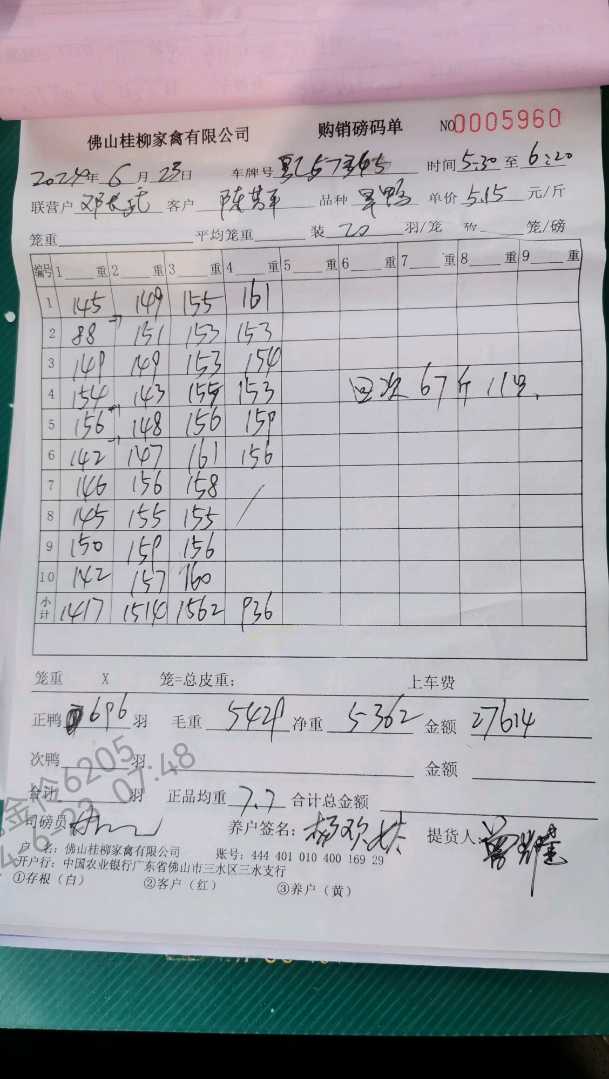 佛山桂柳家禽有限公司 购销磅码单 NO 0005960
2024年 6 月 23日 车牌号 时间 5:30 至 6:20
联营户 客户 陈 平 品种 鸭 单价 5.15 元/斤
笼重 平均笼重 装 20 羽/笼 笼/磅
编号 1 重 2 重 3 重 4 重 5 重 6 重 7 重 8 重 9 重
1 145 149 155 161
2 88 151 153 153
3 149 149 153 154
4 154 143 155 153 次 67斤 11只
5 156 148 156 159
6 142 147 161 156
7 146 156 158
8 145 155 155 /
9 150 159 156
10 142 157 160
小计 1417 1514 1562 936
笼重 X 笼=总皮重: 上车费
正鸭 696 羽 毛重 5429 净重 5362 金额 27614
次鸭 羽 金额
合计 羽 正品均重 7.7 合计总金额
司磅员 养户签名: 杨欢 提货人:
户 名: 佛山桂柳家禽有限公司 账号: 444 401 010 400 169 29
开户行: 中国农业银行广东省佛山市三水区三水支行
①存根（白） ②客户（红） ③养户（黄）
6205
07:48